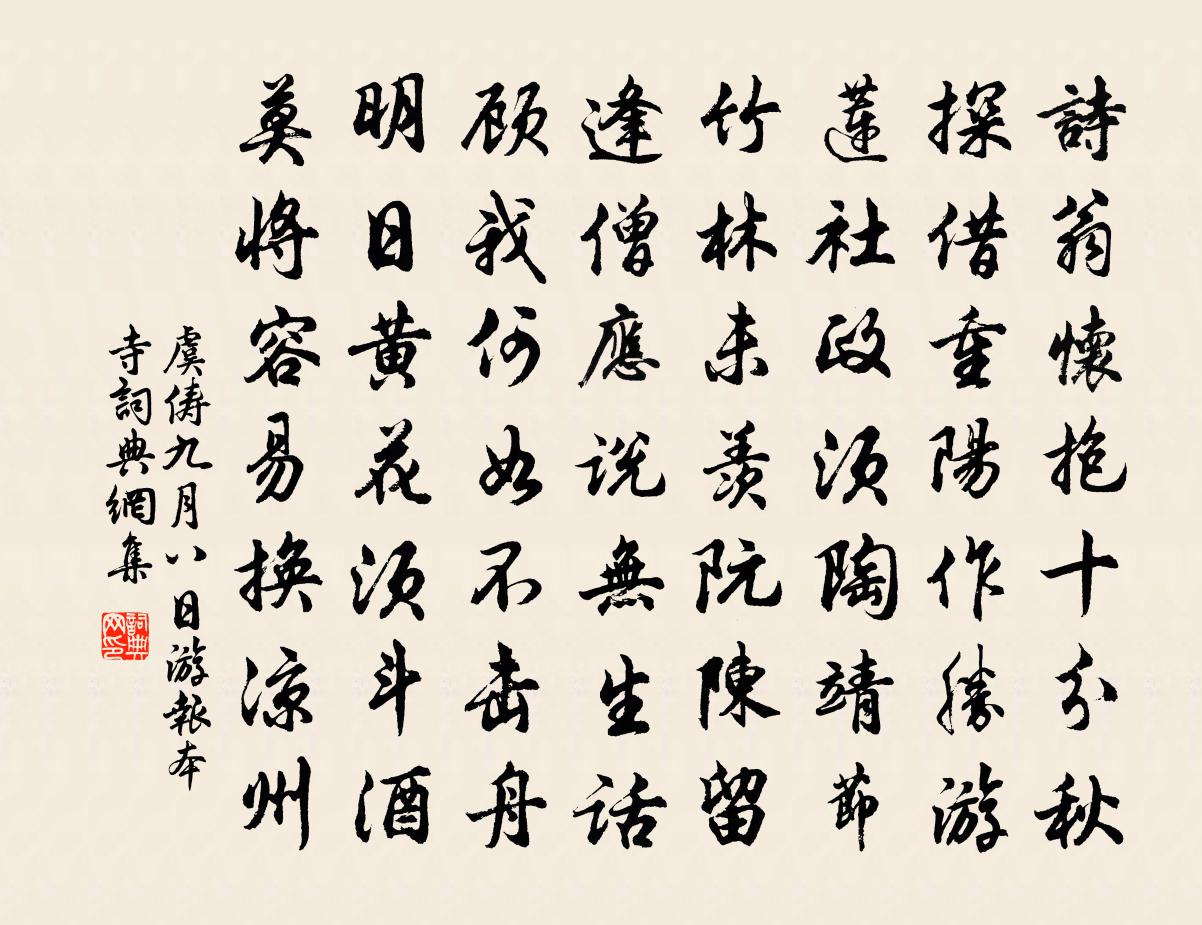 詩翁懷抱十分秋
探借重陽作勝游
蓮社政須陶靖節
竹林未羨阮陳留
逢僧應説無生話
顧我何如不繫舟
明日黃花須斗酒
莫將容易換涼州
虞儔九月八日游報本
寺詞典網集
詞典
网印